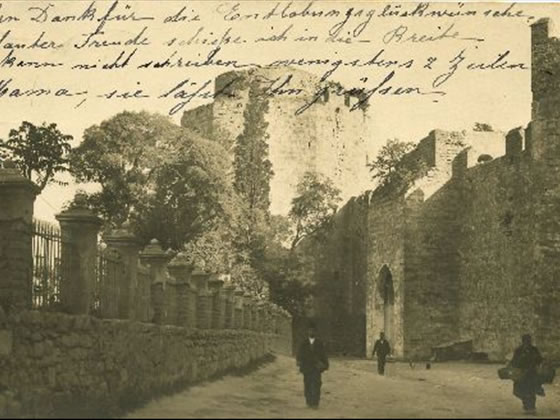 n Dank für die Entlobungsglückwünsche,
lauter Freude schieße ich in die Breite
kann nicht schreiben wenigstens 2 Zeilen
Mama, sie läßt Ihn grüßen.